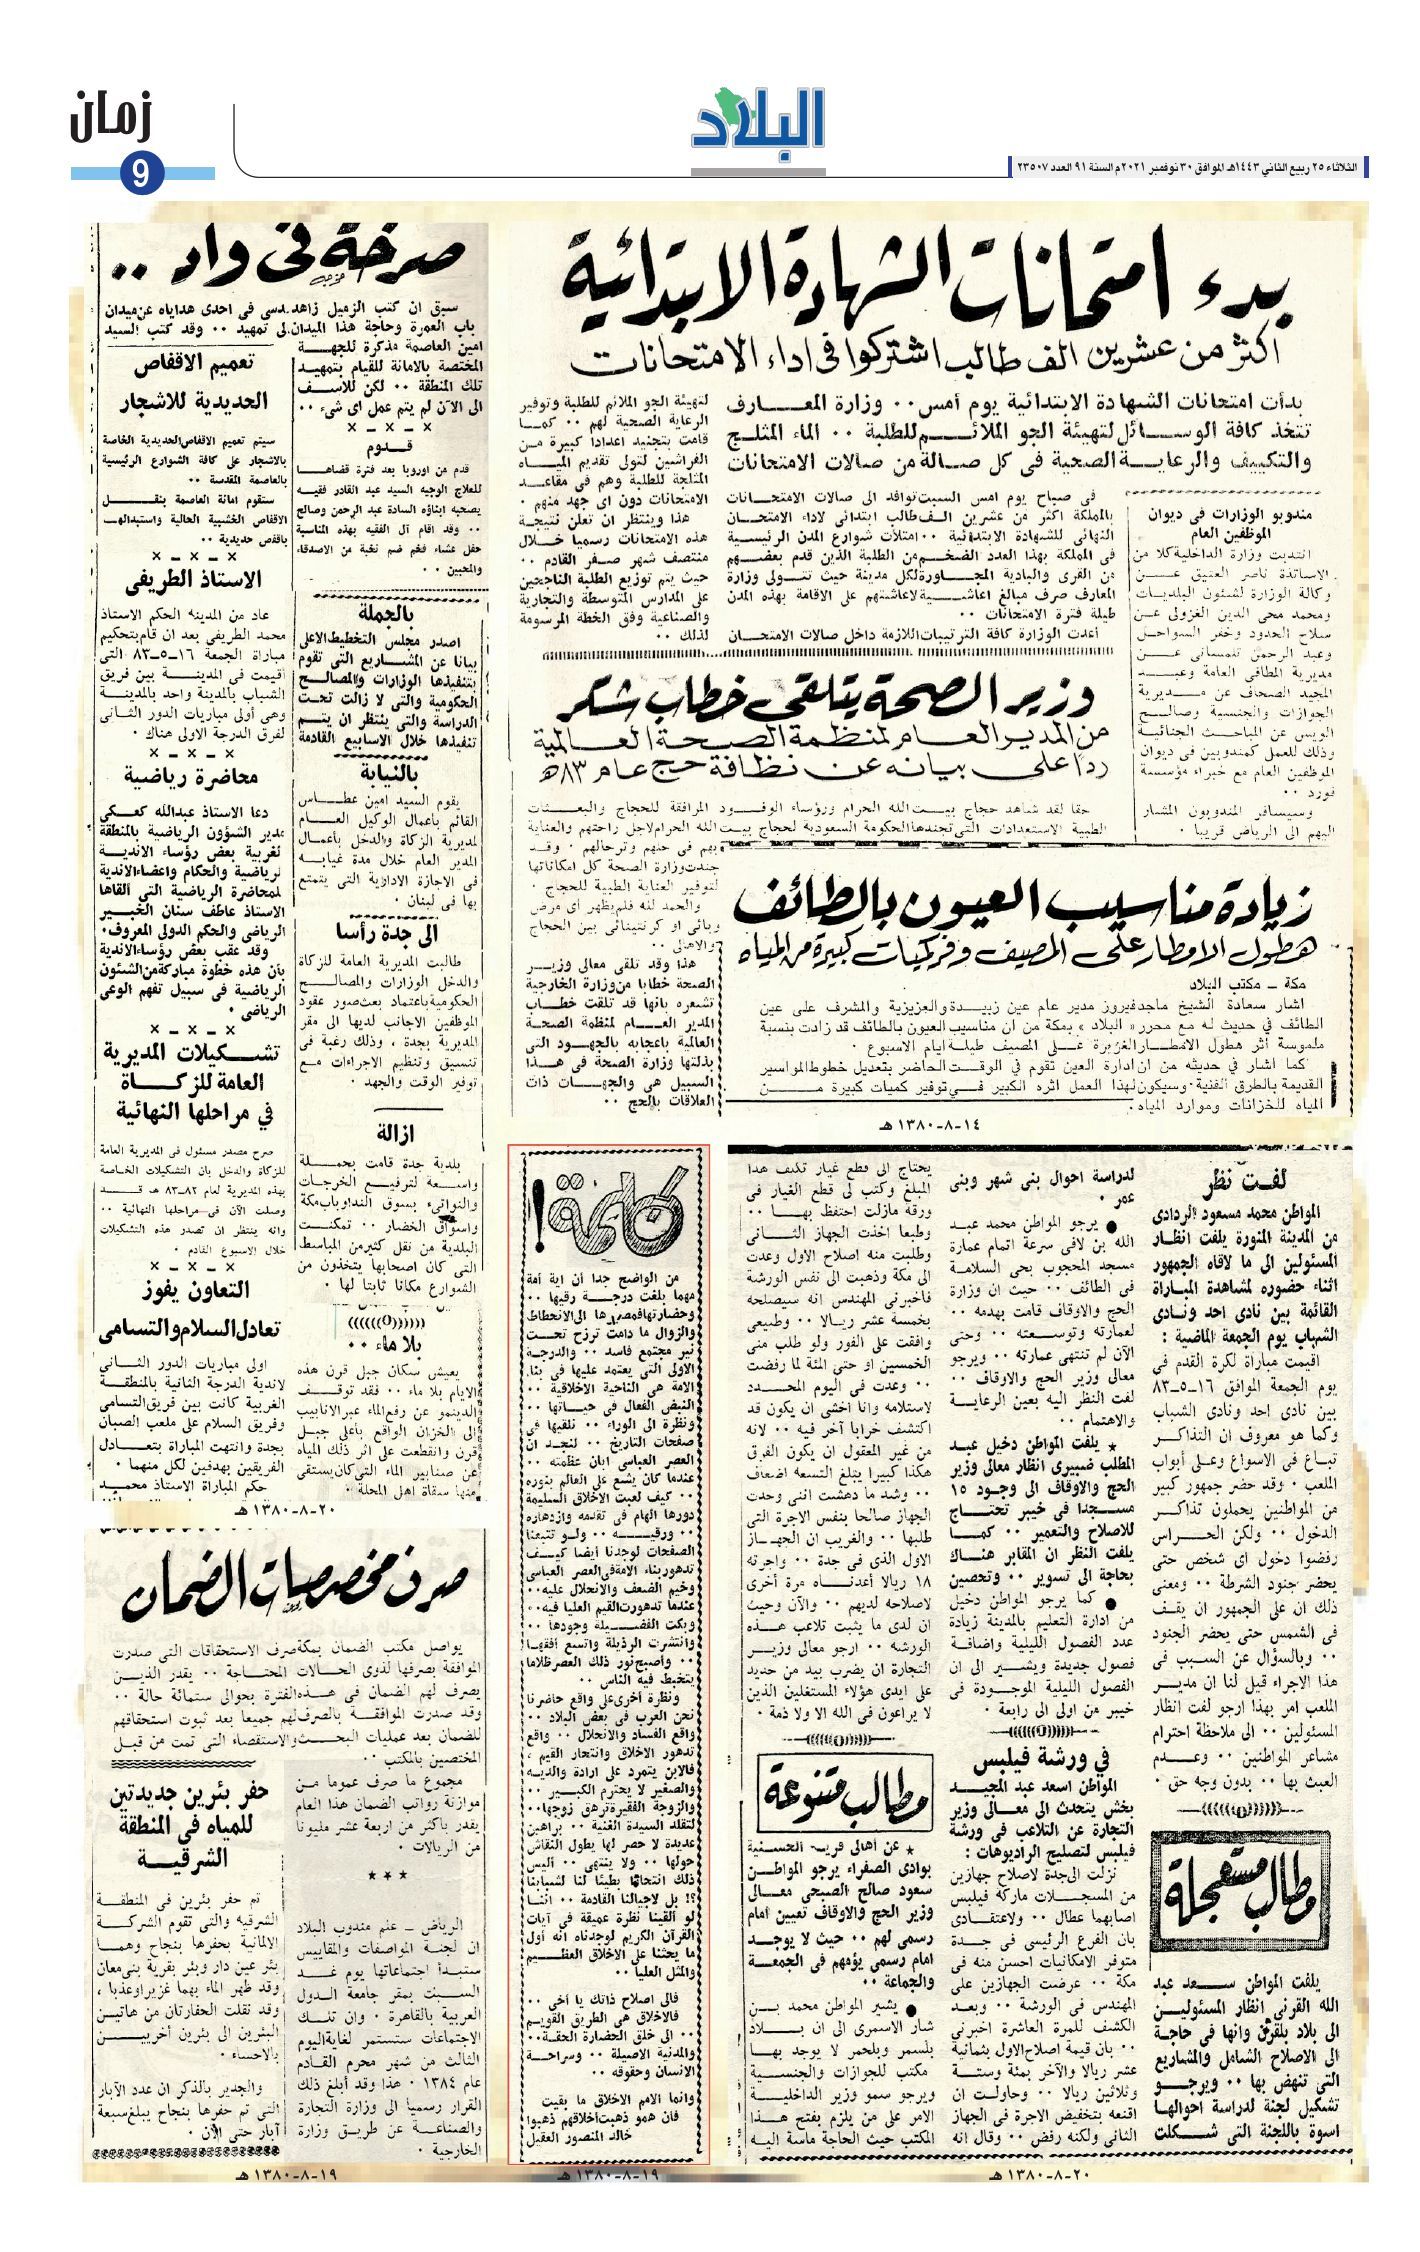 زمان
9
البلاد
الثلاثاء ٢٥ ربيع الثاني ١٤٤٣هـ الموافق ٣٠ نوفمبر ٢٠٢١م السنة ٩١ العدد ٢٣٥٠٧
بدء امتحانات الشهادة الابتدائية
اكثر من عشرين الف طالب اشتركوا فى اداء الامتحانات
بدأت امتحانات الشهادة الابتدائية يوم أمس ٠٠ وزارة المعارف
تتخذ كافة الوسائل لتهيئة الجو الملائم للطلبة ٠٠ الماء المثلج
والتكييف والرعاية الصحية فى كل صالة من صالات الامتحانات
مندوبو الوزارات فى ديوان
الموظفين العام
انتدبت وزارة الداخلية كلا من
الاساتذة ناصر العتيق عن
وكالة الوزارة لشئون البلديات
ومحمد محى الدين الغزولى عن
سلاح الحدود وخفر السواحل
وعبد الرحمن تفمسانى عن
مديرية المطافى العامة وعبد
المجيد الصحاف عن مديرية
الجوازات والجنسية وصالح
الويس عن المباحث الجنائية
وذلك للعمل كمندوبين فى ديوان
الموظفين العام مع خبراء مؤسسة
فورد ٠٠
وسيسافر المندوبون المشار
اليهم الى الرياض قريبا ٠
فى صباح يوم امس السبت توافد الى صالات الامتحانات
بالمملكة اكثر من عشرين الف طالب ابتدائى لاداء الامتحان
النهائى للشهادة الابتدائية ٠٠ امتلأت شوارع المدن الرئيسية
فى المملكة بهذا العدد الضخم من الطلبة الذين قدم بعضهم
من القرى والبادية المجاورة لكل مدينة حيث تتولى وزارة
المعارف صرف مبالغ اعاشية لاعاشتهم على الاقامة بهذه المدن
طيلة فترة الامتحانات ٠٠
أعدت الوزارة كافة الترتيبات اللازمة داخل صالات الامتحان
لتهيئة الجو الملائم للطلبة وتوفير
الرعاية الصحية لهم ٠٠ كما
قامت بتجنيد اعدادا كبيرة من
الفراشين لتولى تقديم المياه
المثلجة للطلبة وهم فى مقاعد
الامتحانات دون اى جهد منهم ٠
هذا وينتظر ان تعلن نتيجة
هذه الامتحانات رسميا خلال
منتصف شهر صفر القادم ٠٠
حيث يتم توزيع الطلبة الناجحين
على المدارس المتوسطة والتجارية
والصناعية وفق الخطة المرسومة
لذلك ٠٠
وزير الصحة يتلقى خطاب شكر
من المدير العام لمنظمة الصحة العالمية
ردا على بيانه عن نظافة حج عام ٨٣هـ
حقا لقد شاهد حجاج بيت الله الحرام ورؤساء الوفود المرافقة للحجاج والبعثات
الطبية الاستعدادات التى تجندها الحكومة السعودية لحجاج بيت الله الحرام لاجل راحتهم والعناية
بهم فى حلهم وترحالهم ٠ وقد
جندت وزارة الصحة كل امكاناتها
لتوفير العناية الطبية للحجاج ٠
والحمد لله فلم يظهر اى مرض
وبائى او كرنتينائى بين الحجاج
والاهالى ٠٠
هذا وقد تلقى معالى وزير
الصحة خطابا من وزارة الخارجية
تشعره بانها قد تلقت خطاب
المدير العام لمنظمة الصحة
العالمية باعجابه بالجهود التى
بذلتها وزارة الصحة فى هذا
السبيل هى والجهات ذات
العلاقات بالحج ٠٠
زيادة مناسيب العيون بالطائف
هطول الامطار على المصيف وفر كميات كبيرة من المياه
مكة ـ مكتب البلاد
اشار سعادة الشيخ ماجد فيروز مدير عام عين زبيدة والعزيزية والمشرف على عين
الطائف في حديث له مع محرر « البلاد » بمكة من ان مناسيب العيون بالطائف قد زادت بنسبة
ملموسة أثر هطول الامطار الغزيرة على المصيف طيلة ايام الاسبوع ٠
كما اشار في حديثه من ان ادارة العين تقوم في الوقت الحاضر بتعديل خطوط المواسير
القديمة بالطرق الفنية ٠ وسيكون لهذا العمل اثره الكبير في توفير كميات كبيرة من
المياه للخزانات وموارد المياه ٠
١٤-٨-١٣٨٠ هـ
صرخة فى واد ..
سبق ان كتب الزميل زاهد قدسى فى احدى هداياه عن ميدان
باب العمرة وحاجة هذا الميدان الى تمهيد ٠٠ وقد كتب السيد
امين العاصمة مذكرة للجهة
المختصة بالامانة للقيام بتمهيد
تلك المنطقة ٠٠ لكن للاسف
الى الآن لم يتم عمل اى شىء ٠٠
× ـ × ـ ×
قدوم
قدم من اوروبا بعد فترة قضاها
للعلاج الوجيه السيد عبد القادر فقيه
يصحبه ابناؤه السادة عبد الرحمن وصالح
٠٠ وقد اقام آل الفقيه بهذه المناسبة
حفل عشاء فخم ضم نخبة من الاصدقاء
والمحبين ٠٠
بالجملة
اصدر مجلس التخطيط الاعلى
بيانا عن المشاريع التى تقوم
بتنفيذها الوزارات والمصالح
الحكومية والتى لا زالت تحت
الدراسة والتى ينتظر ان يتم
تنفيذها خلال الاسابيع القادمة
بالنيابة
يقوم السيد امين عطاس
القائم بأعمال الوكيل العام
لمديرية الزكاة والدخل بأعمال
المدير العام خلال مدة غيابه
فى الاجازة الادارية التى يتمتع
بها فى لبنان ٠
الى جدة رأسا
طالبت المديرية العامة للزكاة
والدخل الوزارات والمصالح
الحكومية باعتماد بعث صور عقود
الموظفين الاجانب لديها الى مقر
المديرية بجدة ، وذلك رغبة فى
تنسيق وتنظيم الاجراءات مع
توفير الوقت والجهد ٠
ازالة
بلدية جدة قامت بحملة
واسعة لترفيع الخرجات
والنواتىء بسوق النداوباب مكة
واسواق الخضار ٠٠ تمكنت
البلدية من نقل كثير من المباسط
التى كان اصحابها يتخذون من
الشوارع مكانا ثابتا لها ٠
بلا ماء ٠٠
يعيش سكان جبل قرن هذه
الايام بلا ماء ٠٠ فقد توقف
الدينمو عن رفع الماء عبر الانابيب
الى الخزان الواقع بأعلى جبل
قرن وانقطعت على اثر ذلك المياه
عن صنابير الماء التى كان يستقى
منها سقاة اهل المحلة ٠
تعميم الاقفاص
الحديدية للاشجار
سيتم تعميم الاقفاص الحديدية الخاصة
بالاشجار على كافة الشوارع الرئيسية
بالعاصمة المقدسة ٠٠
ستقوم امانة العاصمة بنقل
الاقفاص الخشبية الحالية واستبدالها
باقفص حديدية ٠٠
× ـ × ـ ×
الاستاذ الطريفى
عاد من المدينة الحكم الاستاذ
محمد الطريفى بعد ان قام بتحكيم
مباراة الجمعة ١٦ـ٥ـ٨٣ التى
اقيمت فى المدينة بين فريق
الشباب بالمدينة واحد بالمدينة
وهى أولى مباريات الدور الثانى
لفرق الدرجة الاولى هناك ٠
× ـ × ـ ×
محاضرة رياضية
دعا الاستاذ عبدالله كعكى
مدير الشؤون الرياضية بالمنطقة
لغربية بعض رؤساء الاندية
لرياضية والحكام واعضاء الاندية
لمحاضرة الرياضية التى ألقاها
الاستاذ عاطف سنان الخبير
الرياضى والحكم الدولى المعروف ٠
وقد عقب بعض رؤساء الاندية
بأن هذه خطوة مباركة من الشئون
الرياضية فى سبيل تفهم الوعى
الرياضى ٠
× ـ × ـ ×
تشكيلات المديرية
العامة للزكاة
في مراحلها النهائية
صرح مصدر مسئول فى المديرية العامة
للزكاة والدخل بان التشكيلات الخاصة
بهذه المديرية لعام ٨٢ـ٨٣ هـ قد
وصلت الآن فى مراحلها النهائية ٠٠
وانه ينتظر ان تصدر هذه التشكيلات
خلال الاسبوع القادم ٠
× ـ × ـ ×
التعاون يفوز
تعادل السلام والتسامى
اولى مباريات الدور الثانى
لاندية الدرجة الثانية بالمنطقة
الغربية كانت بين فريق التسامى
وفريق السلام على ملعب الصبان
بجدة وانتهت المباراة بتعادل
الفريقين بهدفين لكل منهما ٠
حكم المباراة الاستاذ محمد
٢٠-٨-١٣٨٠ هـ
صرف مخصصات الضمان
يواصل مكتب الضمان بمكة صرف الاستحقاقات التى صدرت
الموافقة بصرفها لذوى الحالات المحتاجة ٠٠ يقدر الذين
يصرف لهم الضمان فى هذه الفترة بحوالى ستمائة حالة ٠٠
وقد صدرت الموافقة بالصرف لهم جميعا بعد ثبوت استحقاقهم
للضمان بعد عمليات البحث والاستقصاء التى تمت من قبل
المختصين بالمكتب ٠٠
مجموع ما صرف عموما من
موازنة رواتب الضمان هذا العام
يقدر باكثر من اربعة عشر مليونا
من الريالات ٠
★ ★ ★
الرياض ـ علم مندوب البلاد
ان لجنة المواصفات والمقاييس
ستبدأ اجتماعاتها يوم غد
السبت بمقر جامعة الدول
العربية بالقاهرة ٠ وان تلك
الاجتماعات ستستمر لغاية اليوم
الثالث من شهر محرم القادم
عام ١٣٨٤ ٠ هذا وقد أبلغ ذلك
القرار رسميا الى وزارة التجارة
والصناعة عن طريق وزارة
الخارجية ٠
حفر بئرين جديدتين
للمياه فى المنطقة
الشرقية
تم حفر بئرين فى المنطقة
الشرقية والتى تقوم الشركة
الالمانية بحفرها بنجاح وهما
بئر عين دار وبئر بقرية بنى معان
وقد ظهر الماء بهما غزيرا وعذبا ،
وقد نقلت الحفارتان من هاتين
البئرين الى بئرين آخريين
بالاحساء ٠
والجدير بالذكر ان عدد الآبار
التى تم حفرها بنجاح يبلغ سبعة
آبار حتى الآن ٠
١٩-٨-١٣٨٠ هـ
كلمة !
من الواضح جدا أن اية أمة
مهما بلغت درجة رقيها ٠٠
وحضارتها فمصيرها الى الانحطاط
والزوال ما دامت ترزح تحت
نير مجتمع فاسد ٠٠ والدرجة
الاولى التى يعتمد عليها فى بناء
الامة هى الناحية الاخلاقية ٠٠
النبض الفعال فى حياتها ٠٠
ونظرة الى الوراء ٠٠ نلقيها فى
صفحات التاريخ ٠٠ لنجد ان
العصر العباسى ابان عظمته ٠٠
عندما كان يشع على العالم بنوره
٠٠ كيف لعبت الاخلاق السليمة
دورها الهام فى تقدمه وازدهاره
٠٠ ورقيه ٠٠ ولو تتبعنا
الصفحات لوجدنا أيضا كيف
تدهور بناء الامة فى العصر العباسى
وخيم الضعف والانحلال عليه ٠٠
عندما تدهورت القيم العليا فيه ٠٠
وبكت الفضيلة وجودها ٠٠
وانتشرت الرذيلة واتسع أفقها
٠٠ وأصبح نور ذلك العصر ظلاما
يتخبط فيه الناس ٠٠
ونظرة أخرى على واقع حاضرنا
نحن العرب فى بعض البلاد ٠٠
واقع الفساد والانحلال ٠٠ واقع
تدهور الاخلاق وانتحار القيم ،
فالابن يتمرد على ارادة والديه
والصغير لا يحترم الكبير ٠٠
والزوجة الفقيرة ترهق زوجها ٠٠
لتقلد السيدة الغنية ٠٠ براهين
عديدة لا حصر لها يطول النقاش
حولها ٠٠ ولا ينتهى ٠٠ أليس
ذلك انتحارا بطيئا لنا لشبابنا
؟! بل لاجيالنا القادمة ٠٠ اننا
لو ألقينا نظرة عميقة فى آيات
القرآن الكريم لوجدناه انه أول
ما يحثنا على الاخلاق العظيم
والمثل العليا ٠٠
فالى اصلاح ذاتك يا أخى ٠٠
فالاخلاق هى الطريق القويم
٠٠ الى خلق الحضارة الحقة ٠٠
والمدنية الاصيلة ٠٠ وسراحة
الانسان وحقوقه ٠٠
وانما الامم الاخلاق ما بقيت
فان همو ذهبت أخلاقهم ذهبوا
خالد المنصور العقيل
١٩-٨-١٣٨٠ هـ
لفت نظر
المواطن محمد مسعود الردادى
من المدينة المنورة يلفت انظار
المسئولين الى ما لاقاه الجمهور
اثناء حضوره لمشاهدة المباراة
القائمة بين نادى احد ونادى
الشباب يوم الجمعة الماضية :
اقيمت مباراة لكرة القدم فى
يوم الجمعة الموافق ١٦ـ٥ـ٨٣
بين نادى احد ونادى الشباب
وكما هو معروف ان التذاكر
تباع فى الاسواق وعلى أبواب
الملعب ٠ وقد حضر جمهور كبير
من المواطنين يحملون تذاكر
الدخول ٠٠ ولكن الحراس
رفضوا دخول اى شخص حتى
يحضر جنود الشرطة ٠٠ ومعنى
ذلك ان على الجمهور ان يقف
فى الشمس حتى يحضر الجنود
٠٠ وبالسؤال عن السبب فى
هذا الاجراء قيل لنا ان مدير
الملعب امر بهذا ارجو لفت انظار
المسئولين ٠٠ الى ملاحظة احترام
مشاعر المواطنين ٠٠ وعدم
العبث بها ٠٠ بدون وجه حق ٠
مطالب مستعجلة
يلفت المواطن سعد عبد
الله القرنى انظار المسئولين
الى بلاد بلقرن وانها فى حاجة
الى الاصلاح الشامل والمشاريع
التى تنهض بها ٠٠ ويرجو
تشكيل لجنة لدراسة احوالها
اسوة باللجنة التى شكلت
لدراسة احوال بنى شهر وبنى
عمر ٠
● يرجو المواطن محمد عبد
الله بن لافى سرعة اتمام عمارة
مسجد المحجوب بحى السلامة
فى الطائف ٠٠ حيث ان وزارة
الحج والاوقاف قامت بهدمه ٠٠
لعمارته وتوسعته ٠٠ وحتى
الآن لم تنتهى عمارته ٠٠ ويرجو
معالى وزير الحج والاوقاف ٠٠
لفت النظر اليه بعين الرعاية
والاهتمام ٠٠
★ يلفت المواطن دخيل عبد
المطلب ضبيرى انظار معالى وزير
الحج والاوقاف الى وجود ١٥
مسجدا فى خيبر تحتاج
للاصلاح والتعمير ٠٠ كما
يلفت النظر ان المقابر هناك
بحاجة الى تسوير ٠٠ وتحصين
● كما يرجو المواطن دخيل
من ادارة التعليم بالمدينة زيادة
عدد الفصول الليلية واضافة
فصول جديدة ويشير الى ان
الفصول الليلية الموجودة فى
خيبر من اولى الى رابعة ٠
في ورشة فيلبس
المواطن اسعد عبد المجيد
بخش يتحدث الى معالى وزير
التجارة عن التلاعب فى ورشة
فيلبس لتصليح الراديوهات :
نزلت الى جدة لاصلاح جهازين
من المسجلات ماركة فيلبس
اصابهما عطال ٠٠ ولاعتقادى
بان الفرع الرئيسى فى جدة
متوفر الامكانيات احسن منه فى
مكة ٠٠ عرضت الجهازين على
المهندس فى الورشة ٠٠ وبعد
الكشف للمرة العاشرة اخبرنى
٠٠ بان قيمة اصلاح الاول بثمانية
عشر ريالا والآخر بمئة وستة
وثلاثين ريالا ٠٠ وحاولت ان
اقنعه بتخفيض الاجرة فى الجهاز
الثانى ولكنه رفض ٠٠ وقال انه
يحتاج الى قطع غيار تكلف هذا
المبلغ وكتب لى قطع الغيار فى
ورقة مازلت احتفظ بها ٠٠
وطبعا اخذت الجهاز الثانى
وطلبت منه اصلاح الاول وعدت
الى مكة وذهبت الى نفس الورشة
فأخبرنى المهندس انه سيصلحه
بخمسة عشر ريالا ٠٠ وطبيعى
وافقت على الفور ولو طلب منى
الخمسين او حتى المئة لما رفضت
٠٠ وعدت فى اليوم المحدد
لاستلامه وانا اخشى ان يكون قد
اكتشف خرابا آخر فيه ٠٠ لانه
من غير المعقول ان يكون الفرق
هكذا كبيرا يبلغ التسعة اضعاف
٠٠ وشد ما دهشت اننى وجدت
الجهاز صالحا بنفس الاجرة التى
طلبها ٠٠ والغريب ان الجهاز
الاول الذى فى جدة ٠٠ واجرته
١٨ ريالا أعدناه مرة أخرى
لاصلاحه لديهم ٠٠ والآن وحيث
ان لدى ما يثبت تلاعب هذه
الورشة ٠٠ ارجو معالى وزير
التجارة ان يضرب بيد من حديد
على ايدى هؤلاء المستغلين الذين
لا يراعون فى الله الا ولا ذمة ٠
مطالب متنوعة
★ عن اهالى قرية الحسنية
بوادى الصفراء يرجو المواطن
سعود صالح الصبحى معالى
وزير الحج والاوقاف تعيين امام
رسمى لهم ٠٠ حيث لا يوجد
امام رسمى يؤمهم فى الجمعة
والجماعة ٠٠
● يشير المواطن محمد بن
شار الاسمرى الى ان بلاد
بلسمر وبلحمر لا يوجد بها
مكتب للجوازات والجنسية
ويرجو سمو وزير الداخلية
الامر على من يلزم بفتح هذا
المكتب حيث الحاجة ماسة اليه
٢٠-٨-١٣٨٠ هـ